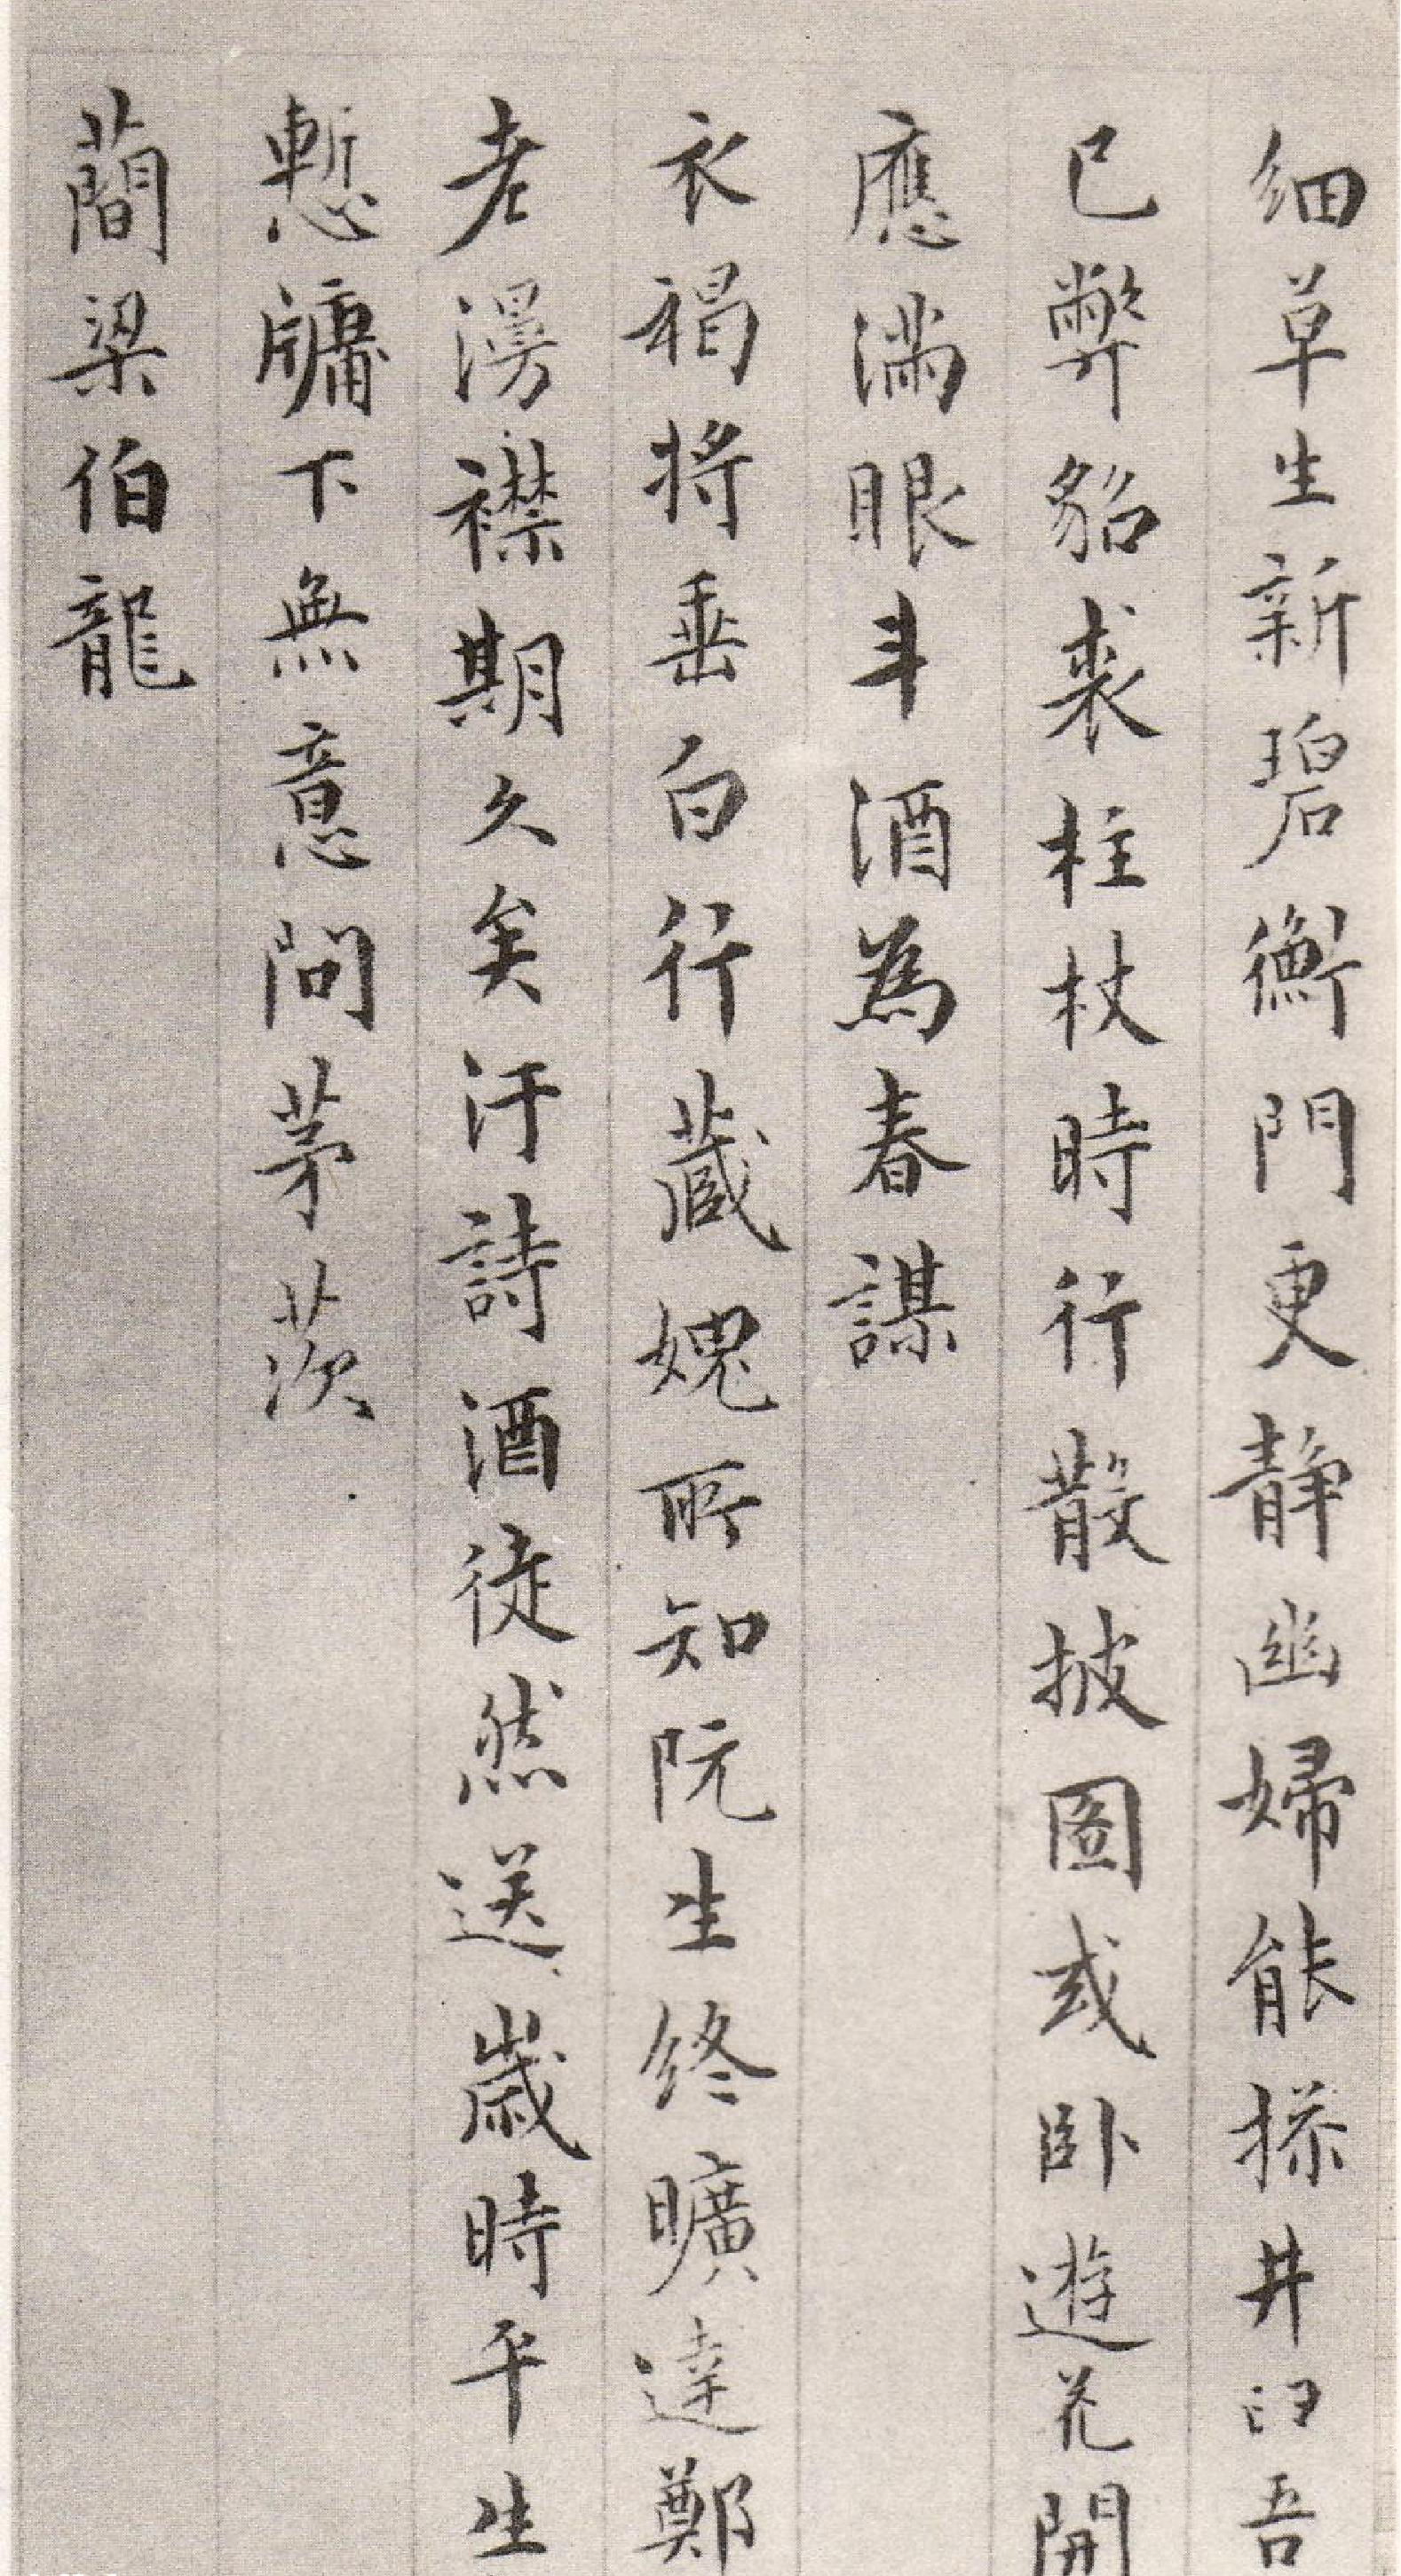 细草生新碧衡門更靜幽婦能操井臼吾
已弊貂裘柱杖時行散披圖或卧遊花開
應滿眼斗酒為春謀
衣褐将垂白行蔵媿所知阮生终曠達鄭
老漫襟期久矣汙詩酒徒然送歲時平生
慙牗下無意問茅茨
蕳梁伯龍